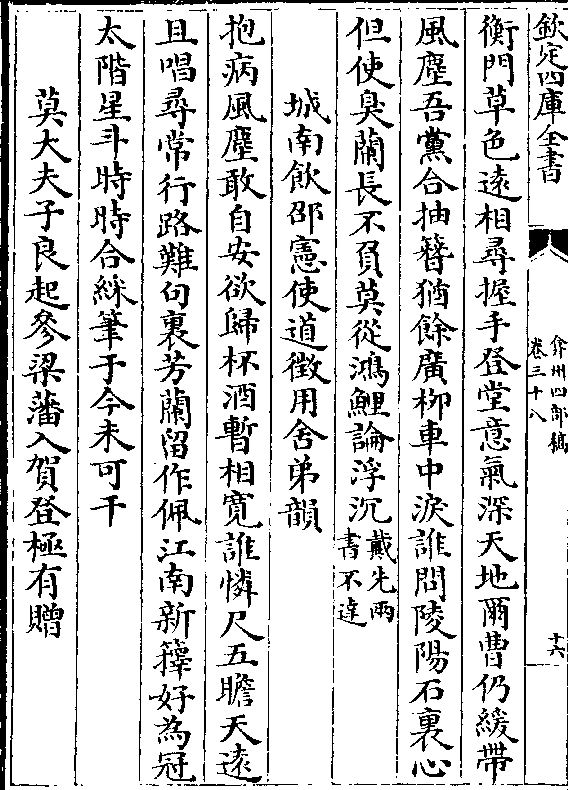 欽定四庫全書
弇州四部稿
卷三十八
十六
衡門草色遠相尋握手登堂意氣深天地爾曹仍緩帶
風塵吾黨合抽簪猶餘廣柳車中淚誰問陵陽石裏心
但使臭蘭長不負莫從鴻鯉論浮沉戴先兩
書不達
城南飲邵憲使道徵用舍弟韻
抱病風塵敢自安欲歸杯酒暫相寛誰憐尺五瞻天遠
且唱尋常行路難句裏芳蘭留作佩江南新籜好為冠
太階星斗時時合綵筆于今未可干
莫大夫子良起參梁藩入賀登極有贈